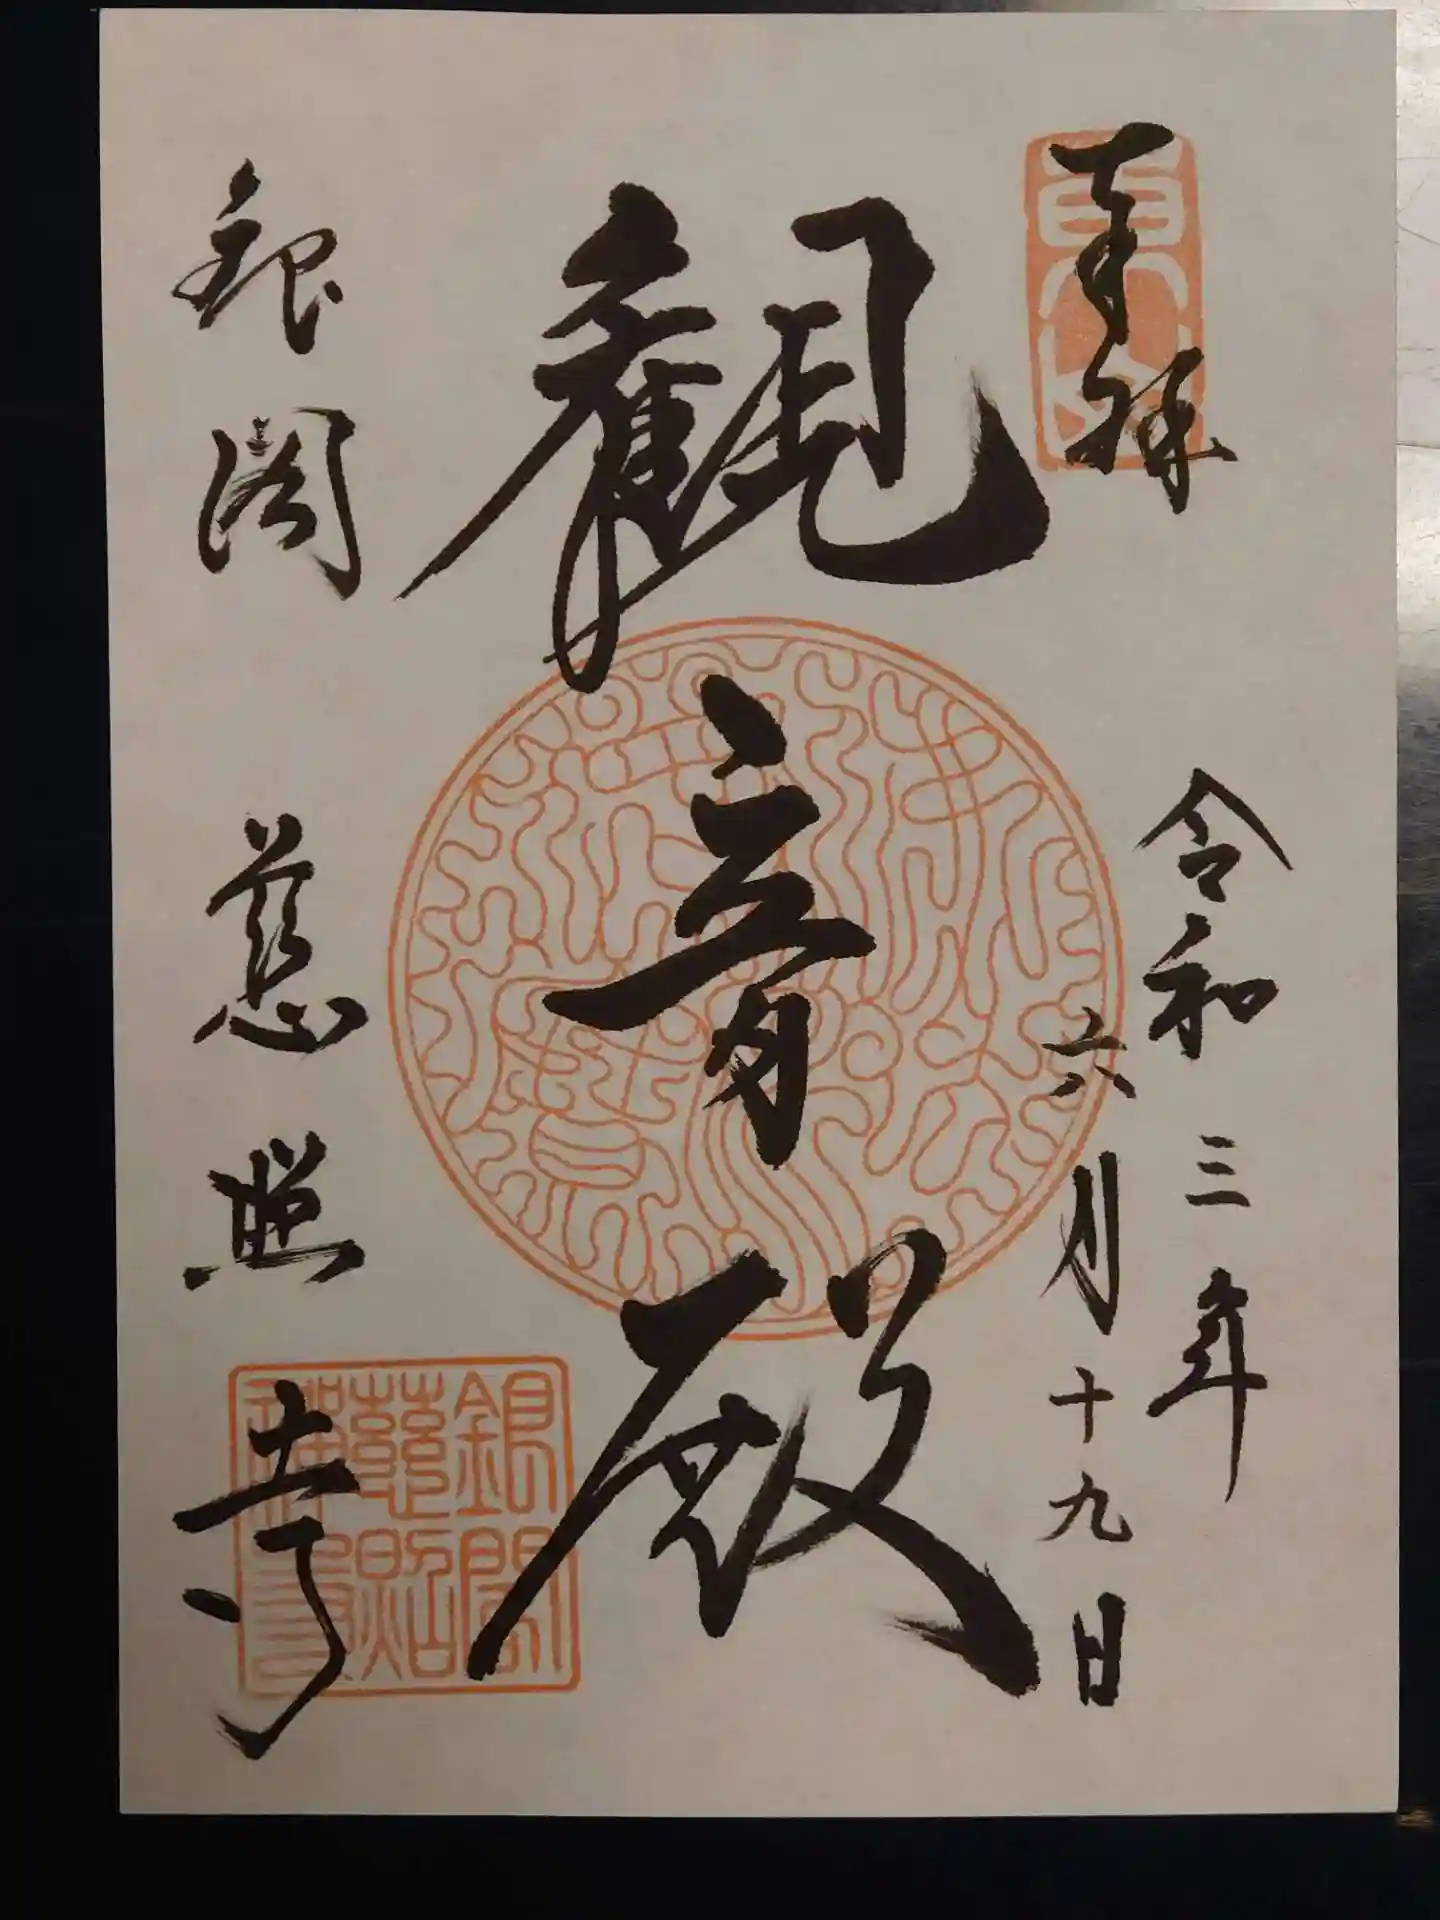 奉拝
令和三年
六月十九日
觀音殿
銀閣 慈照寺
銀閣
慈照
禅寺
東山